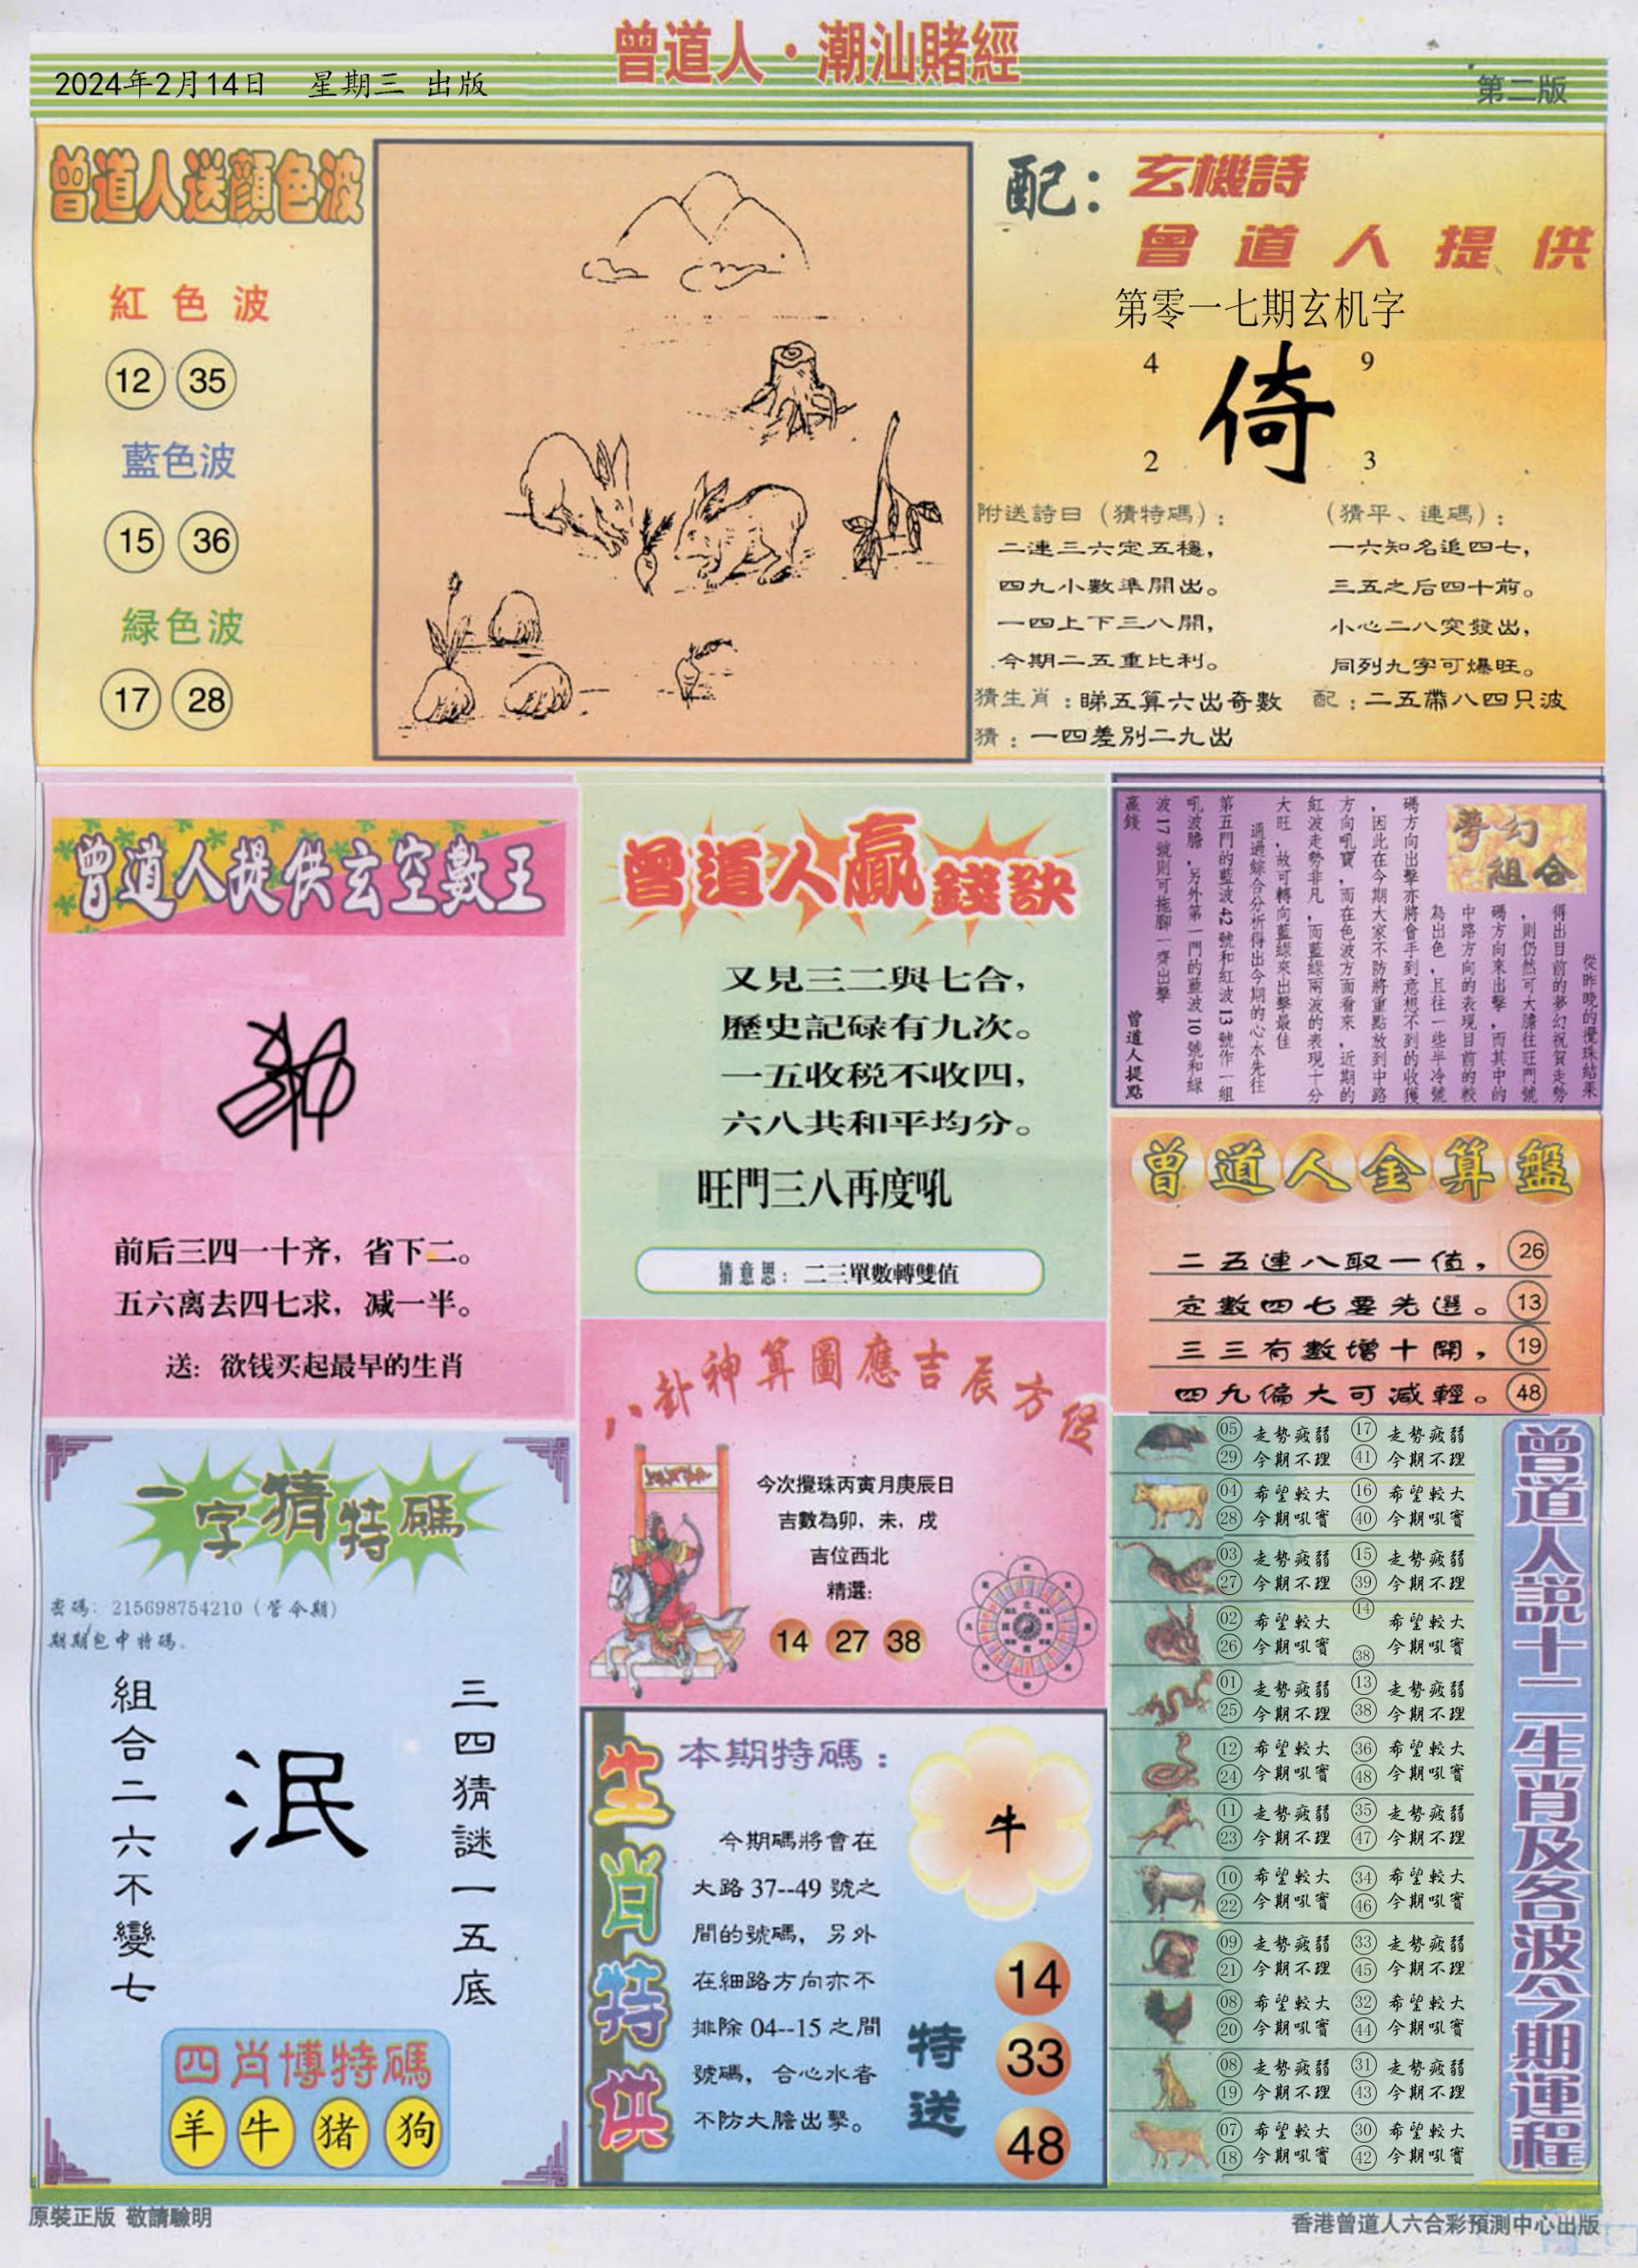 曾道人·潮汕賭經
2024年2月14日 星期三 出版
第二版
曾道人送顔色波
紅色波
12 35
藍色波
15 36
緑色波
17 28
配：玄機詩
曾道人提供
第零一七期玄机字
4 9
倚
2 3
附送詩曰（猜特碼）：
二連三六定五穩，
四九小數準開出。
一四上下三八開，
今期二五重比利。
（猜平、連碼）：
一六知名追四七，
三五之后四十前。
小心二八突發出，
同列九字可爆旺。
猜生肖：睇五算六出奇數 配：二五帶八四只波
猜：一四差別二九出
曾道人提供玄空數王
前后三四一十齐，省下二。
五六离去四七求，减一半。
送：欲钱买起最早的生肖
曾道人贏錢訣
又見三二與七合，
歷史記碌有九次。
一五收税不收四，
六八共和平均分。
旺門三八再度吼
猜意思：二三單數轉雙值
夢幻組合
從昨晚的攪珠結果
得出目前的夢幻祝賀走勢
，則仍然可大膽往旺門號
碼方向來出擊，而其中的
中路方向的表現目前的較
為出色，且往一些半冷號
碼方向出擊亦將會手到意想不到的收獲
，因此在今期大家不防將重點放到中路
方向吼寶，而在色波方面看來，近期的
紅波走勢非凡，而藍緑兩波的表現十分
大旺，故可轉向藍緑來出擊最佳
通過綜合分析得出今期的心水先往
第五門的藍波42號和紅波13號作一組
吼波膽，另外第一門的藍波10號和緑
波17號則可拖腳一齊出擊
贏錢
曾道人提點
曾道人金算盤
二五連八取一值，26
定數四七要先選。13
三三有數增十開，19
四九偏大可減輕。48
八卦神算圖應吉辰方位
今次攪珠丙寅月庚辰日
吉數為卯，未，戌
吉位西北
精選：
14 27 38
一字猜特碼
密碼：215698754210（管令期）
期期包中特碼。
三四猜謎一五底
泯
組合二六不變七
四肖博特碼
羊 牛 猪 狗
生肖特供
本期特碼：
牛
今期碼將會在
大路37--49號之
間的號碼，另外
在細路方向亦不
排除04--15之間
號碼，合心水者
不防大膽出擊。
特送
14
33
48
曾道人説十二生肖及各波今期運程
05 走勢疲弱 17 走勢疲弱
29 今期不理 41 今期不理
04 希望較大 16 希望較大
28 今期吼實 40 今期吼實
03 走勢疲弱 15 走勢疲弱
27 今期不理 39 今期不理
02 希望較大 14 希望較大
26 今期吼實 38 今期吼實
01 走勢疲弱 13 走勢疲弱
25 今期不理 38 今期不理
12 希望較大 36 希望較大
24 今期吼實 48 今期吼實
11 走勢疲弱 35 走勢疲弱
23 今期不理 47 今期不理
10 希望較大 34 希望較大
22 今期吼實 46 今期吼實
09 走勢疲弱 33 走勢疲弱
21 今期不理 45 今期不理
08 希望較大 32 希望較大
20 今期吼實 44 今期吼實
08 走勢疲弱 31 走勢疲弱
19 今期不理 43 今期不理
07 希望較大 30 希望較大
18 今期吼實 42 今期吼實
原裝正版 敬請驗明
香港曾道人六合彩預測中心出版